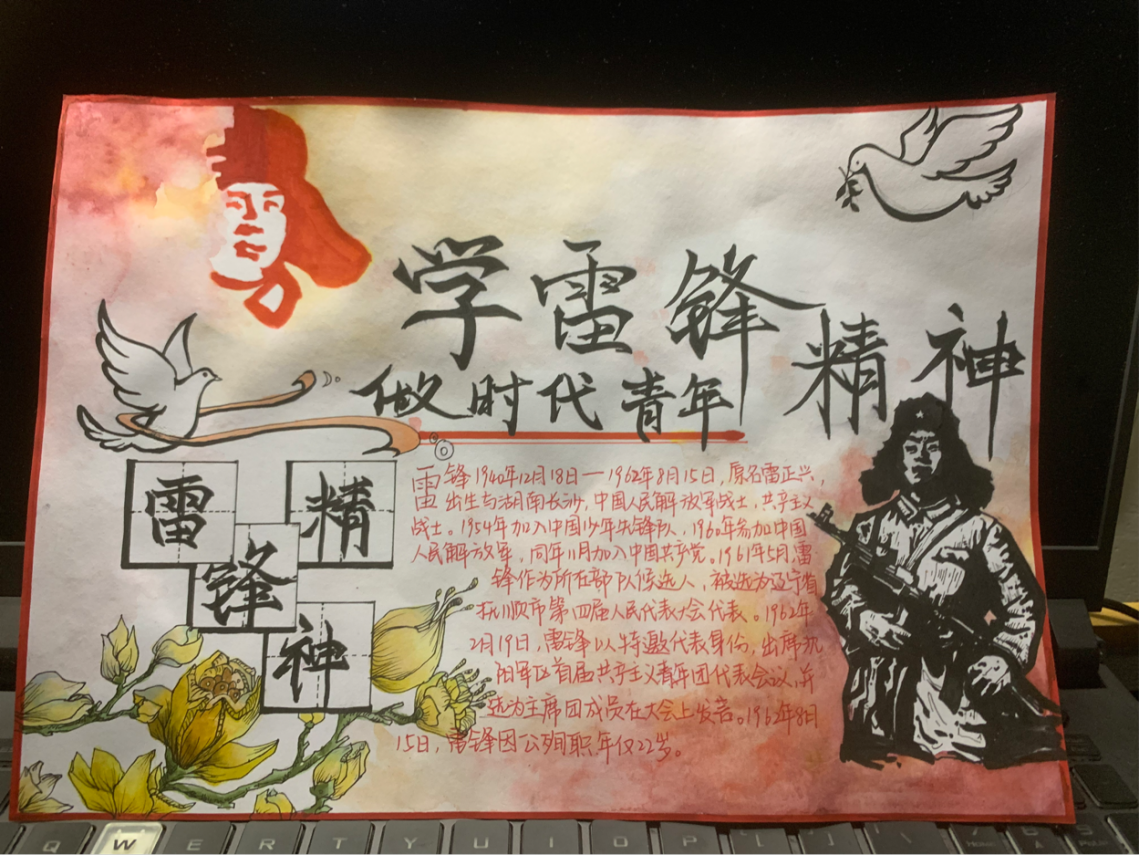 学雷锋精神
做时代青年
雷锋精神
雷锋1940年12月18日—1962年8月15日，原名雷正兴，
出生与湖南长沙，中国人民解放军战士，共产主义
战士。1954年加入中国少年先锋队，1960年参加中国
人民解放军，同年11月加入中国共产党。1961年5月，雷
锋作为所在部队候选人，被选为辽宁省
抚顺市第四届人民代表大会代表。1962年
2月19日，雷锋以特邀代表身份，出席沈
阳军区首届共产主义青年团代表会议，并
选为主席团成员在大会上发言。1962年8月
15日，雷锋因公殉职年仅22岁。
Q W E R T Y U I O P